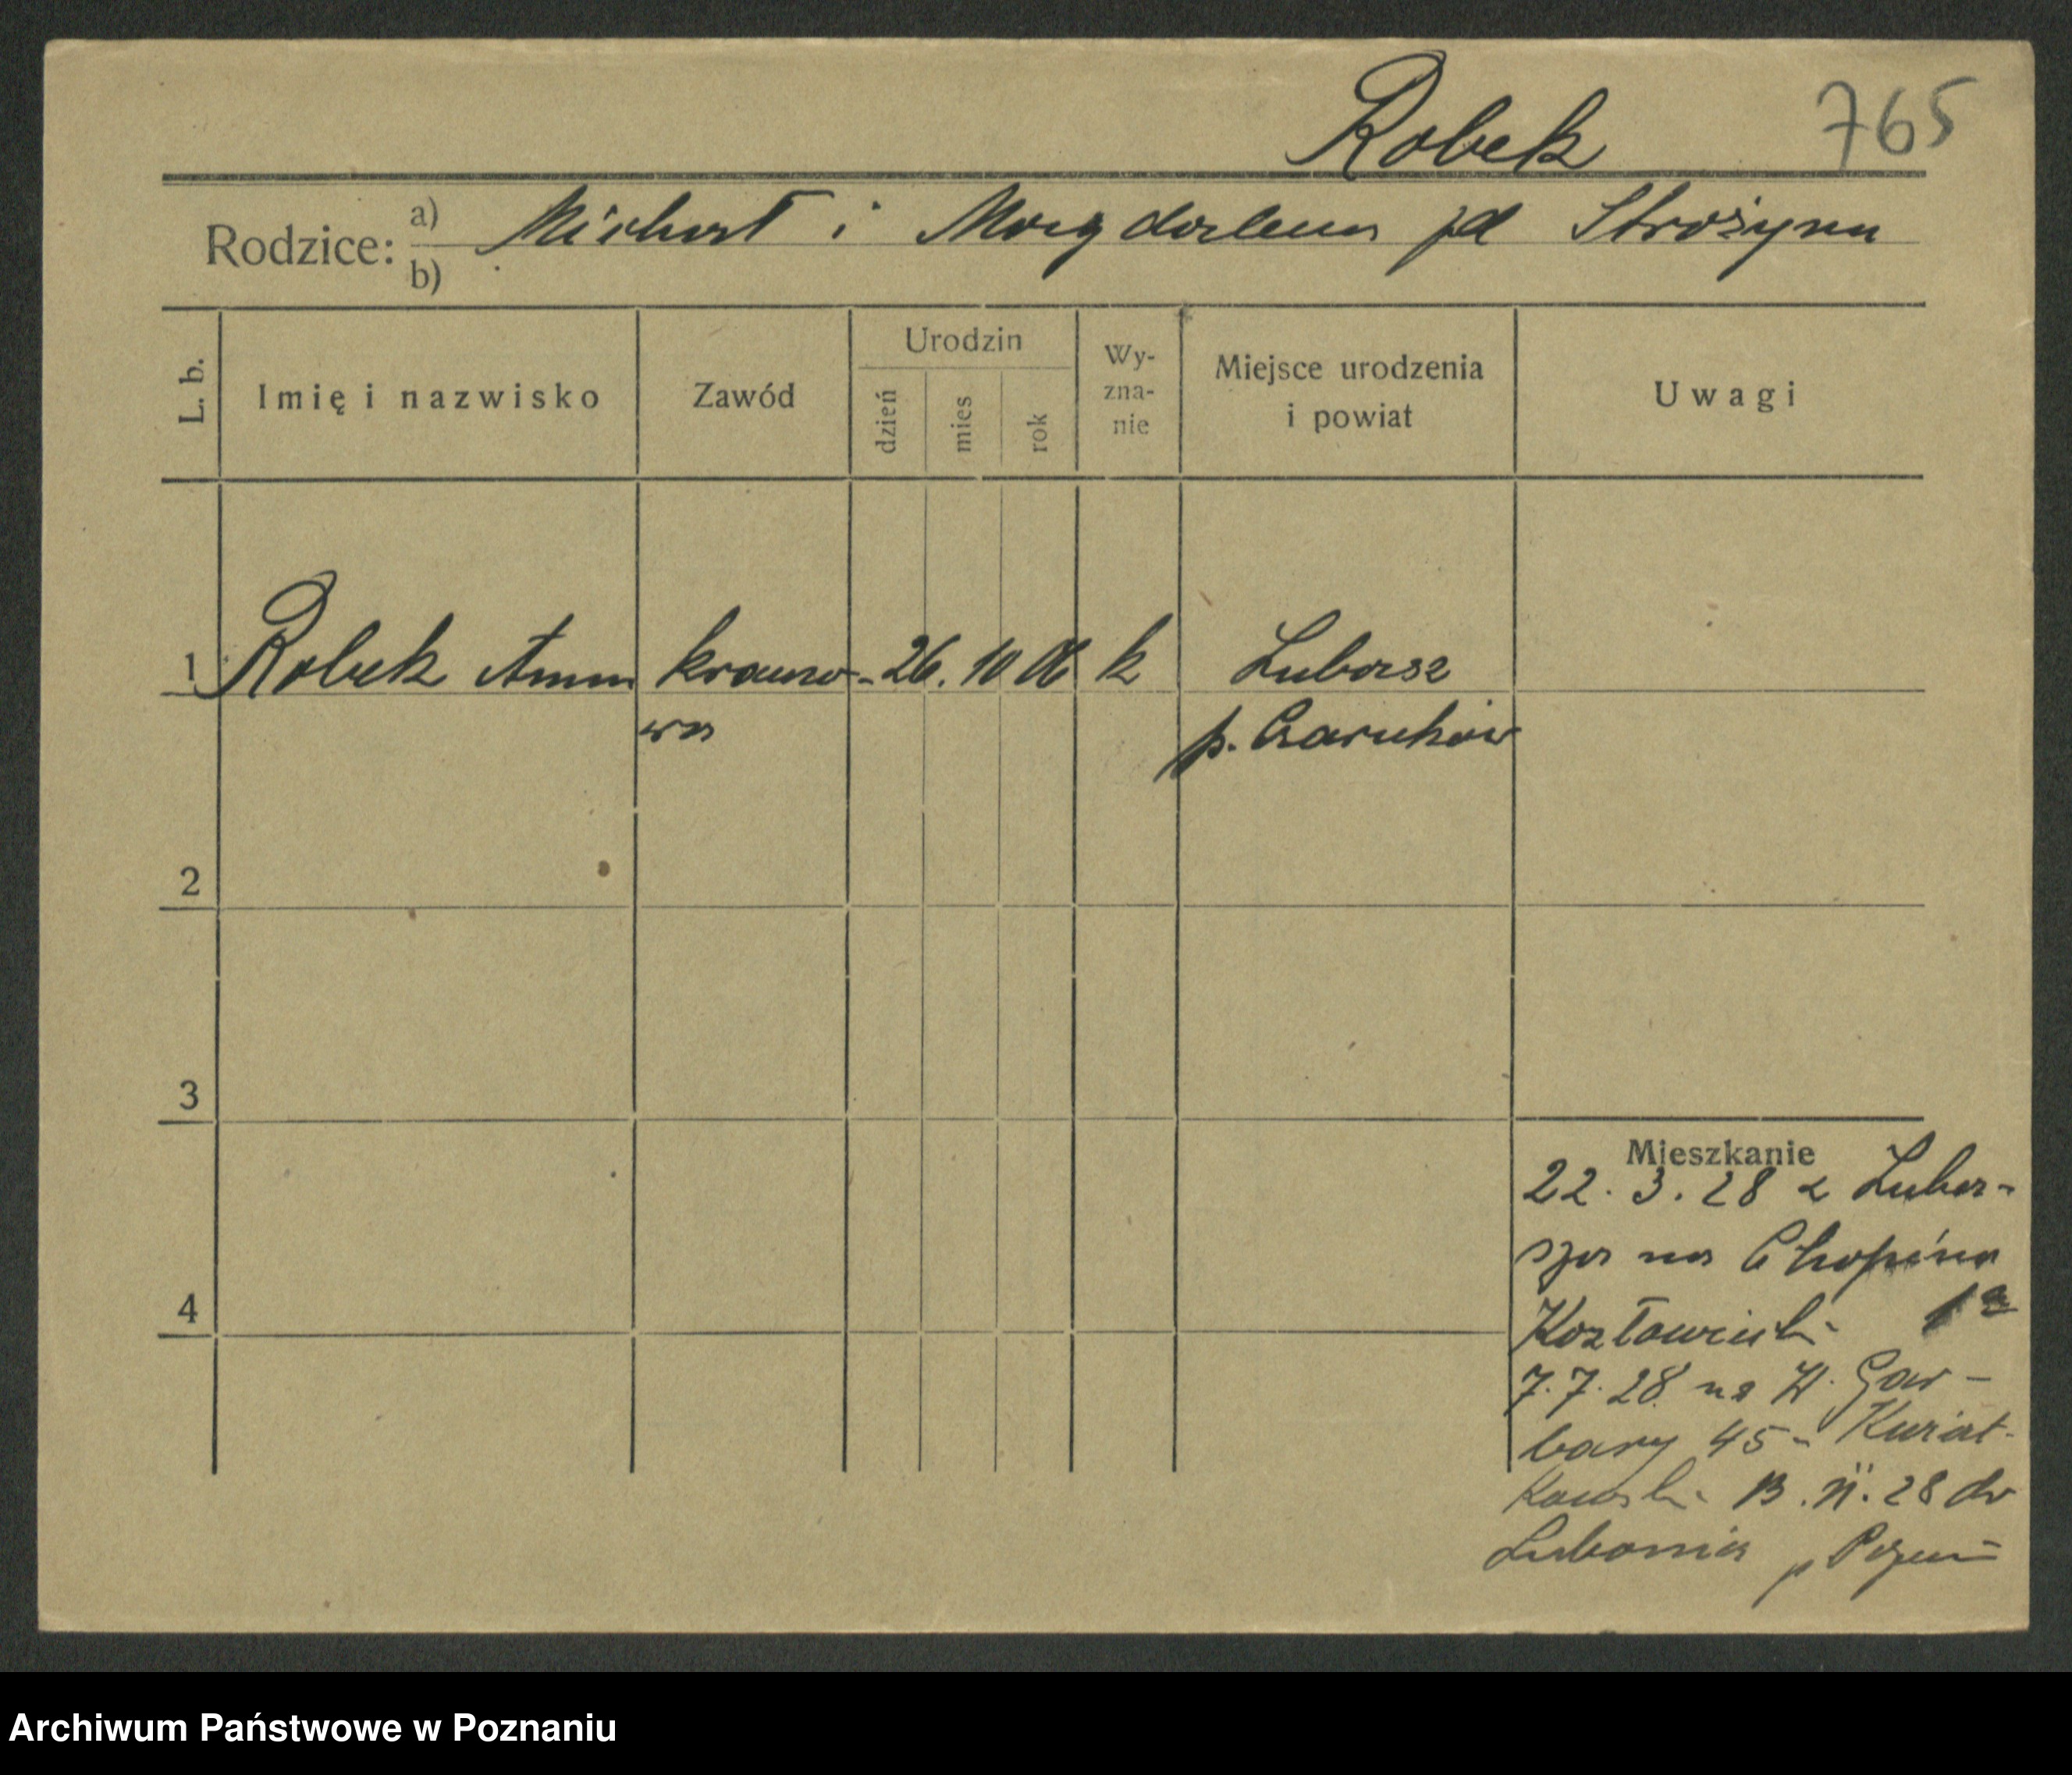 Robek 765
Rodzice: a) Michał i Magdalena zd Strożyna
b)
L. b. Imię i nazwisko Zawód Urodzin dzień mies rok Wy-zna-nie Miejsce urodzenia i powiat Uwagi
1 Robek Anna krawco- 26. 10 06 k Lubasz
wa p. Czarnków
2
3
Mieszkanie
22. 3. 28 z Luba-
sza na Chopina
4 1a
Kozłowski
7.7.28 na W. Gar-
bary 45 - Kwiat-
kowski 13. 11. 28 do
Lubonia p Pozn
Archiwum Państwowe w Poznaniu